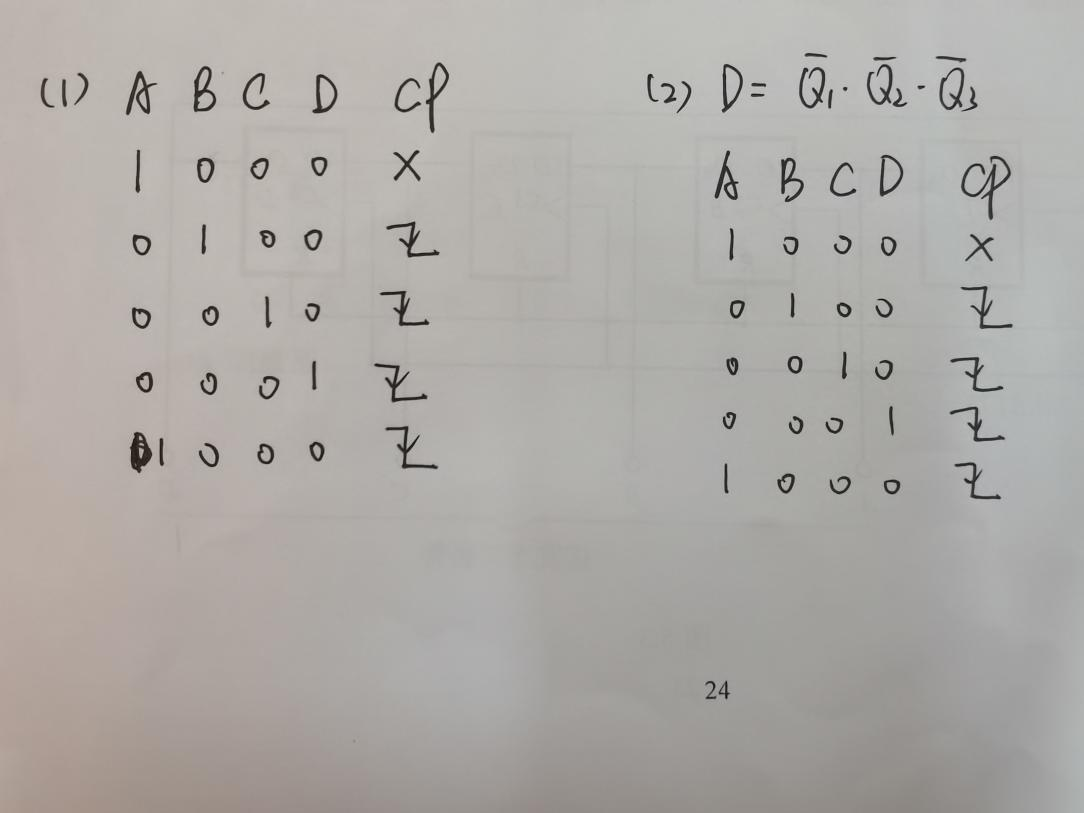 (1) A B C D CP
1 0 0 0 ×
0 1 0 0 ↓
0 0 1 0 ↓
0 0 0 1 ↓
1 0 0 0 ↓
(2) D = Q̄₁·Q̄₂·Q̄₃
A B C D CP
1 0 0 0 ×
0 1 0 0 ↓
0 0 1 0 ↓
0 0 0 1 ↓
1 0 0 0 ↓
24